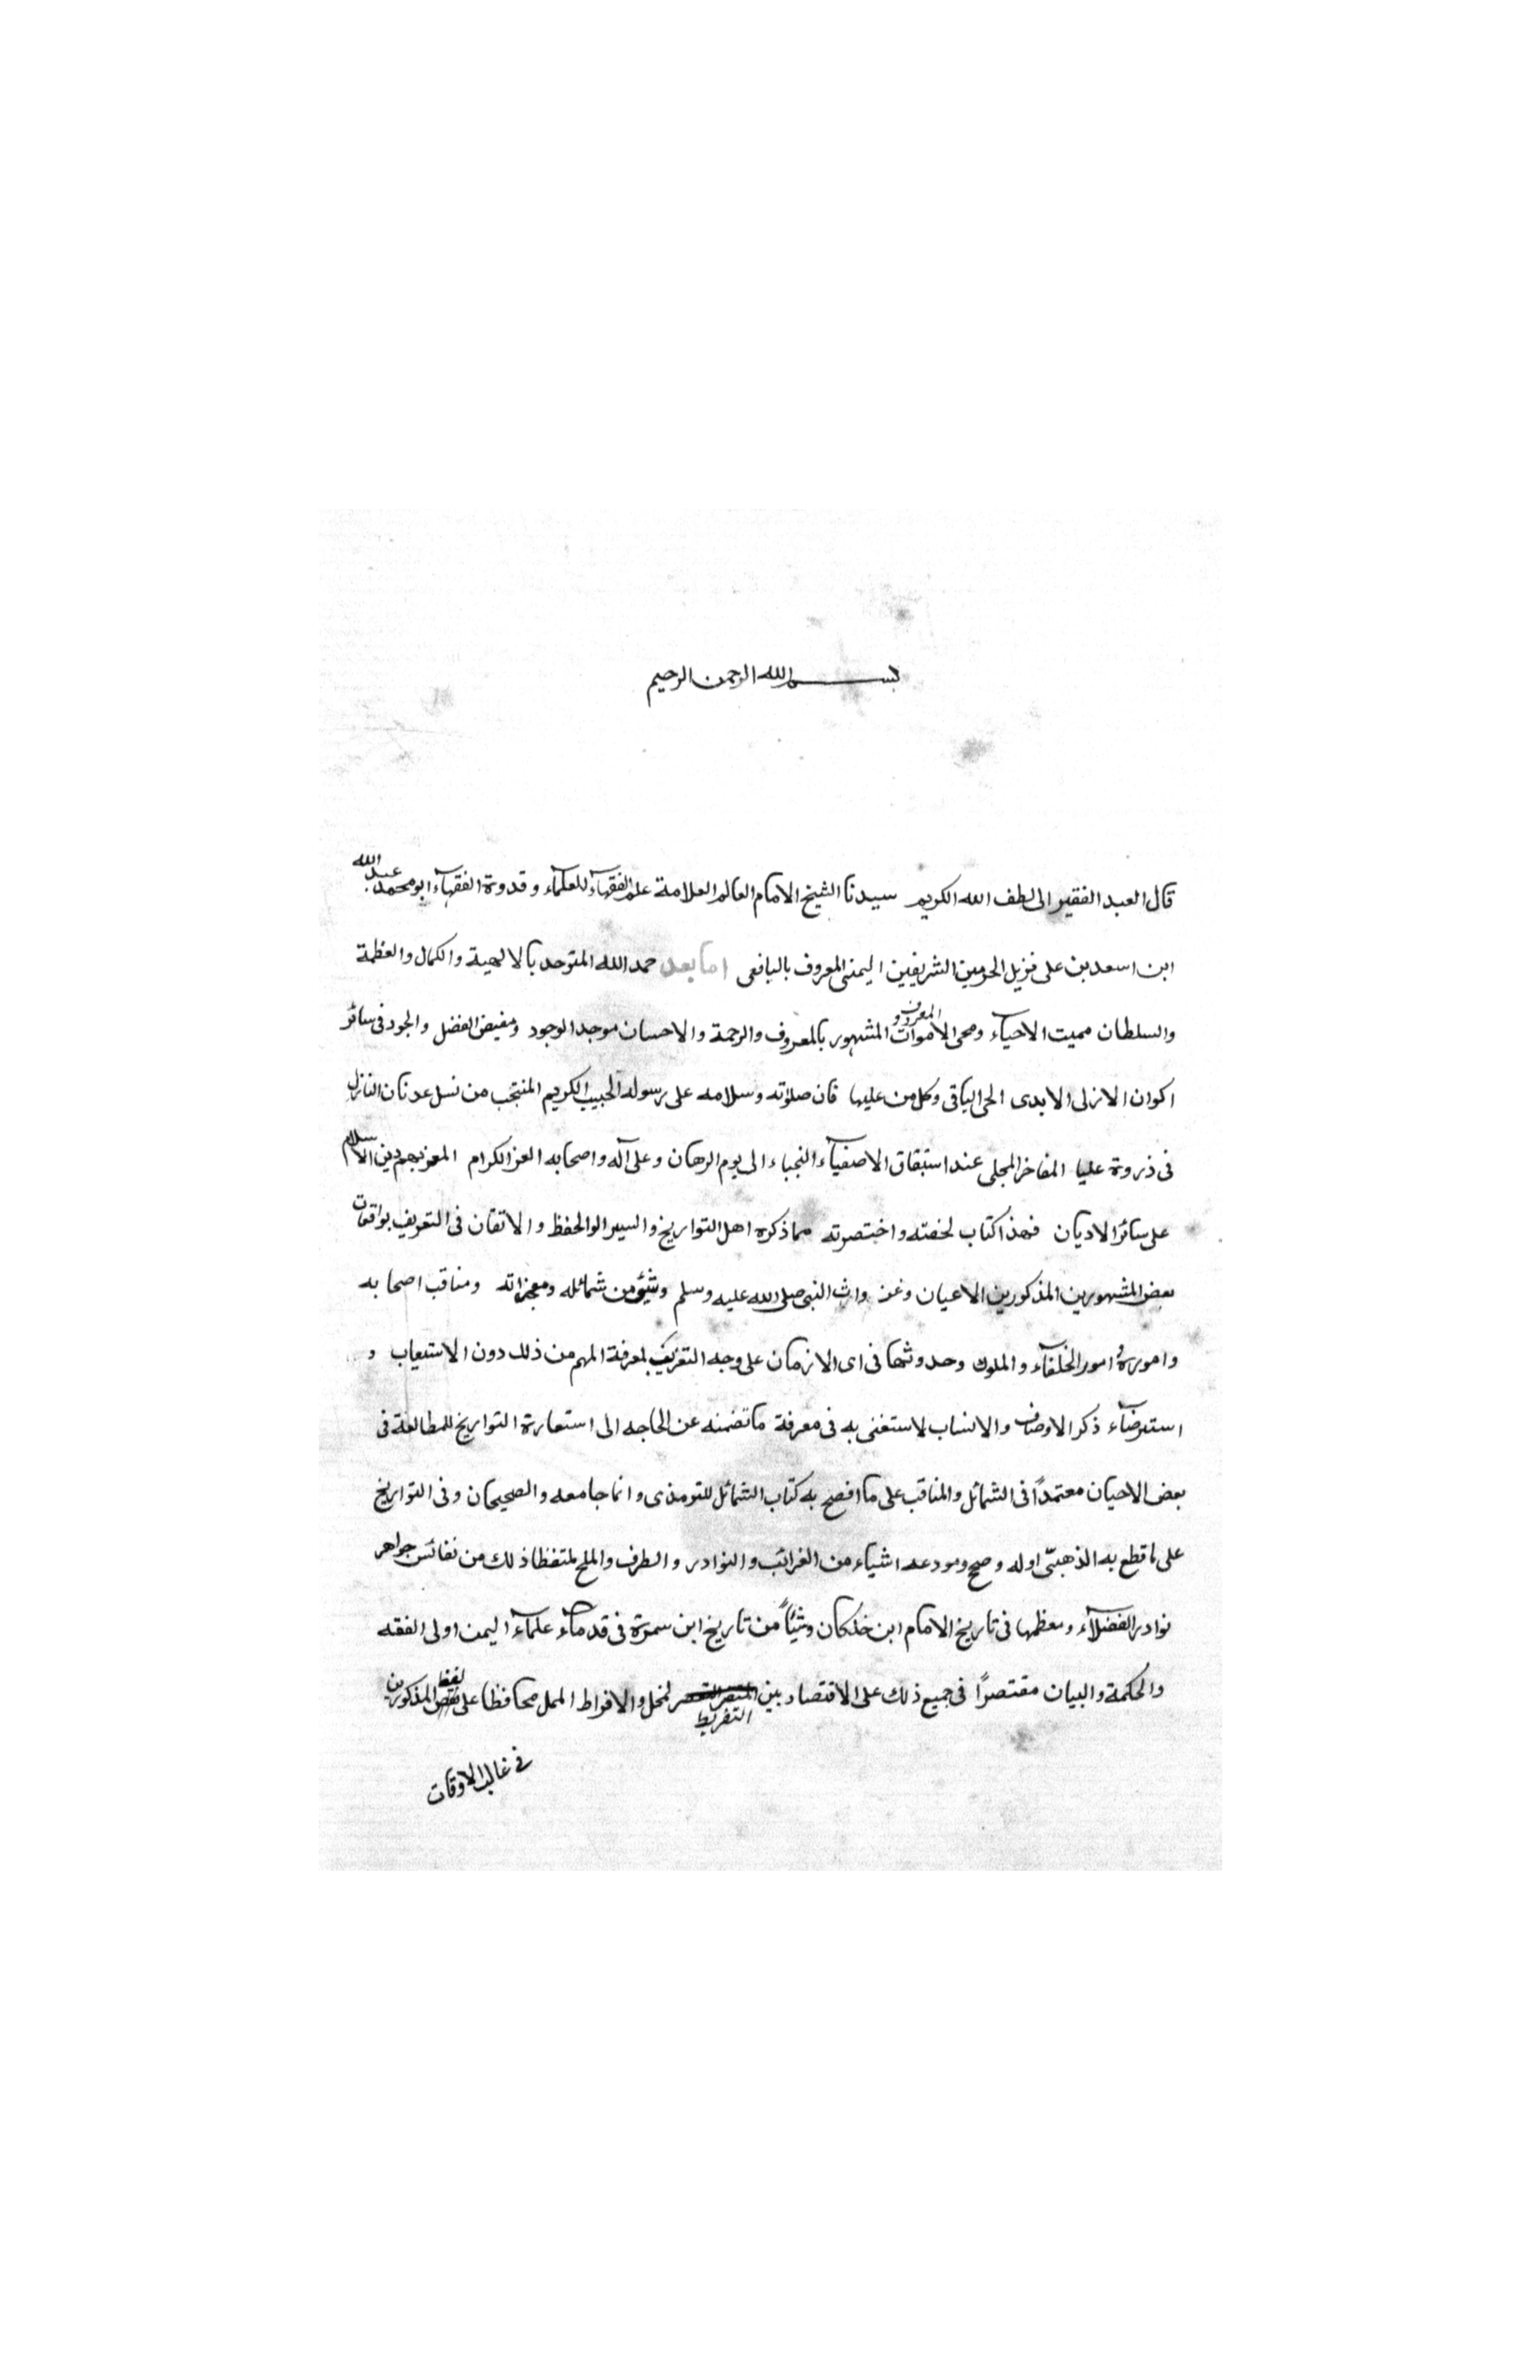 بسم الله الرحمن الرحيم
قال العبد الفقير الى لطف الله الكريم سيدنا الشيخ الامام العالم العلامة علم الفقهاء للعلماء وقدوة الفقهاء ابو محمد عبد الله
ابن اسعد بن على نزيل الحرمين الشريفين اليمنى المعروف باليافعى اما بعد حمد الله المتوحد بالالهية والكمال والعظمة
والسلطان مميت الاحياء ومحى الاموات المعروف و المشهور بالمعروف والرحمة والاحسان موجد الوجود ومفيض الفضل والجود فى سائر
اكوان الازلى الابدى الحى الباقى وكل من عليها فان صلاته وسلامه على رسوله الحبيب الكريم المنتجب من نسل عدنان النازل
فى ذروة عليا المفاخر المجلى عند استبقاق الاصفياء النجباء الى يوم الرهان وعلى آله واصحابه الغر الكرام المعز بهم دين الاسلام
على سائر الاديان فهذا كتاب لخصته واختصرته مما ذكره اهل التواريخ والسير الوالحفظ والاتقان فى التعريف بواقعات
بعض المشهورين المذكورين الاعيان وغز واث النبى صلى الله عليه وسلم وشئ من شمائله ومعجزاته ومناقب اصحابه
واموره و امور الخلفاء والملوك وحدوثها فى اى الازمان على وجه التعريف لمعرفة المهم من ذلك دون الاستيعاب و
استرضاء ذكر الاوصاف والانساب لاستغنى به فى معرفة ما تضمنه عن الحاجه الى استعارة التواريخ للمطالعة فى
بعض الاحيان معتمداً فى الشمائل والمناقب على ما افصح به كتاب الشمائل للترمذى وانما جامعه والصحيحان وفى التواريخ
على ما قطع به الذهبى اوله وصح ومودعه اشياء من الغرائب والنوادر والطرف والملح ملتفظا ذلك من نفائس جواهر
نوادر الفضلاء ومعظمها فى تاريخ الامام ابن خلكان وشيئاً من تاريخ ابن سمرة فى قدماء علماء اليمن اولى الفقه
والحكمة والبيان مقتصراً فى جميع ذلك على الاقتصاد بين التفريط لمخل والافراط الممل محافظا على لفظ المذكورين
فى غالب الاوقات